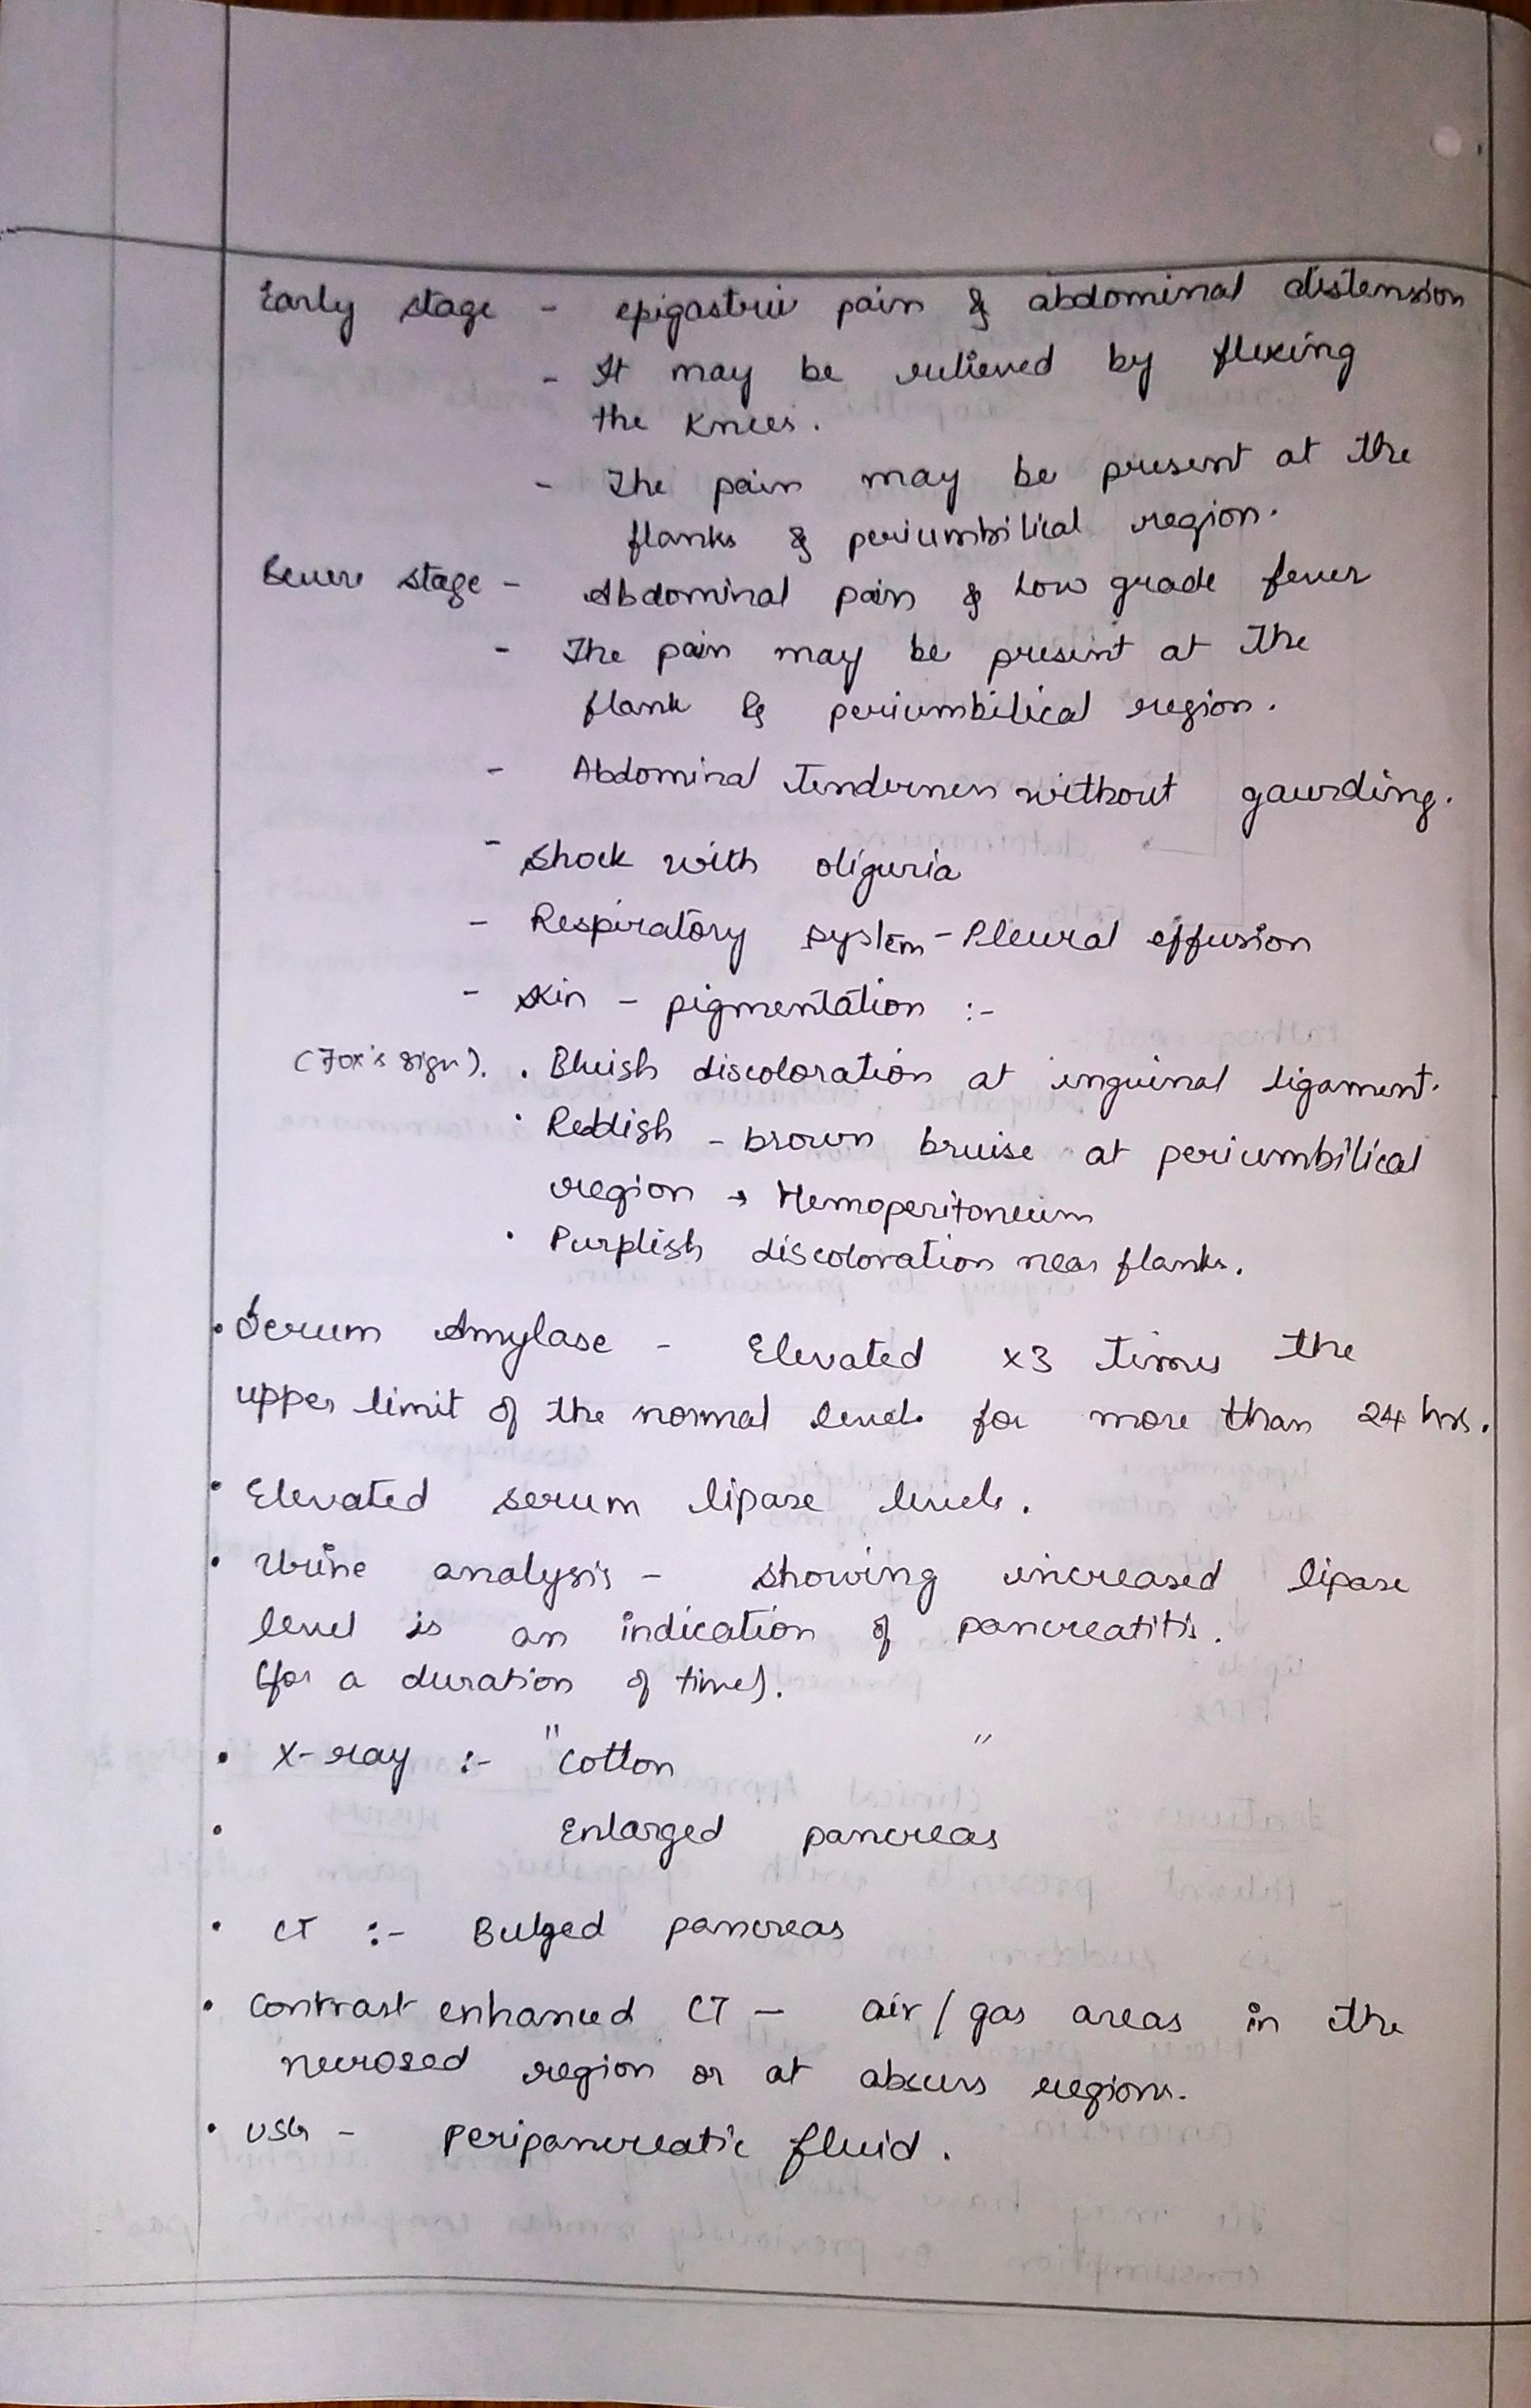 Early stage - epigastric pain & abdominal distension
- It may be relieved by flexing
the knees.
- The pain may be present at the
flanks & periumbilical region.
Severe stage - Abdominal pain & low grade fever
- The pain may be present at the
flank & periumbilical region.
- Abdominal tenderness without gaurding.
- Shock with oliguria
- Respiratory system - Pleural effusion
- Skin - pigmentation :-
(Fox's sign). • Bluish discoloration at inguinal ligament.
• Reddish - brown bruise at periumbilical
region → Hemoperitoneum
• Purplish discoloration near flanks.
• Serum Amylase - Elevated x3 times the
upper limit of the normal level for more than 24 hrs.
• Elevated serum lipase levels.
• Urine analysis - showing increased lipase
level is an indication of pancreatitis.
(for a duration of time).
• X-ray :- "Cotton "
• Enlarged pancreas
• CT :- Bulged pancreas
• Contrast enhanced CT - air/gas areas in the
necrosed region or at abscess regions.
• USG - peripancreatic fluid.